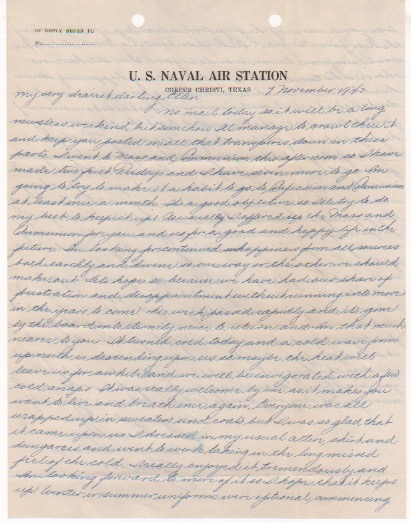 IN REPLY REFER TO
No.
U. S. NAVAL AIR STATION
CORPUS CHRISTI, TEXAS 7 November 1942
My very dearest darling Ellen
No mail today so it will be a long
newsless weekend, but somehow I'll manage to crawl thru it
and keep you posted on all that transpires down in these
parts. I went to Mass and Communion this afternoon so I have
made two first Fridays and I have seven more to go. I'm
going to try to make it a habit to go to Confession and Communion
at least once a month. It's a good objective so I'll try to do
my best to keep it up. As usual I offered up the Mass and
Communion for you and us for a good and happy life in the
future. I'm looking for continued happiness from all sources
both earthly and divine so one way or the other we should
make out. Let's hope so because we have had our share of
frustration and disappointment without running into more
in the years to come. This week passed rapidly and it's gone
by the board into eternity never to return and I'm that much
nearer to you. It turned cold today and a cold wave from
up north is descending upon us so maybe the heat will
leave us for awhile and we will be invigorated with a few
cold snaps. It was really welcome by me as it makes you
want to live and breathe once again. Everyone was all
wrapped up in sweaters and coats but I was so glad that
it came upon us I dressed in my usual attire, shirt and
dungarees and went to work taking in the long missed
feel of the cold. I really enjoyed it tremendously and
I'm looking forward to more of it so I hope that it keeps
up. Winter or summer uniforms were optional, commencing